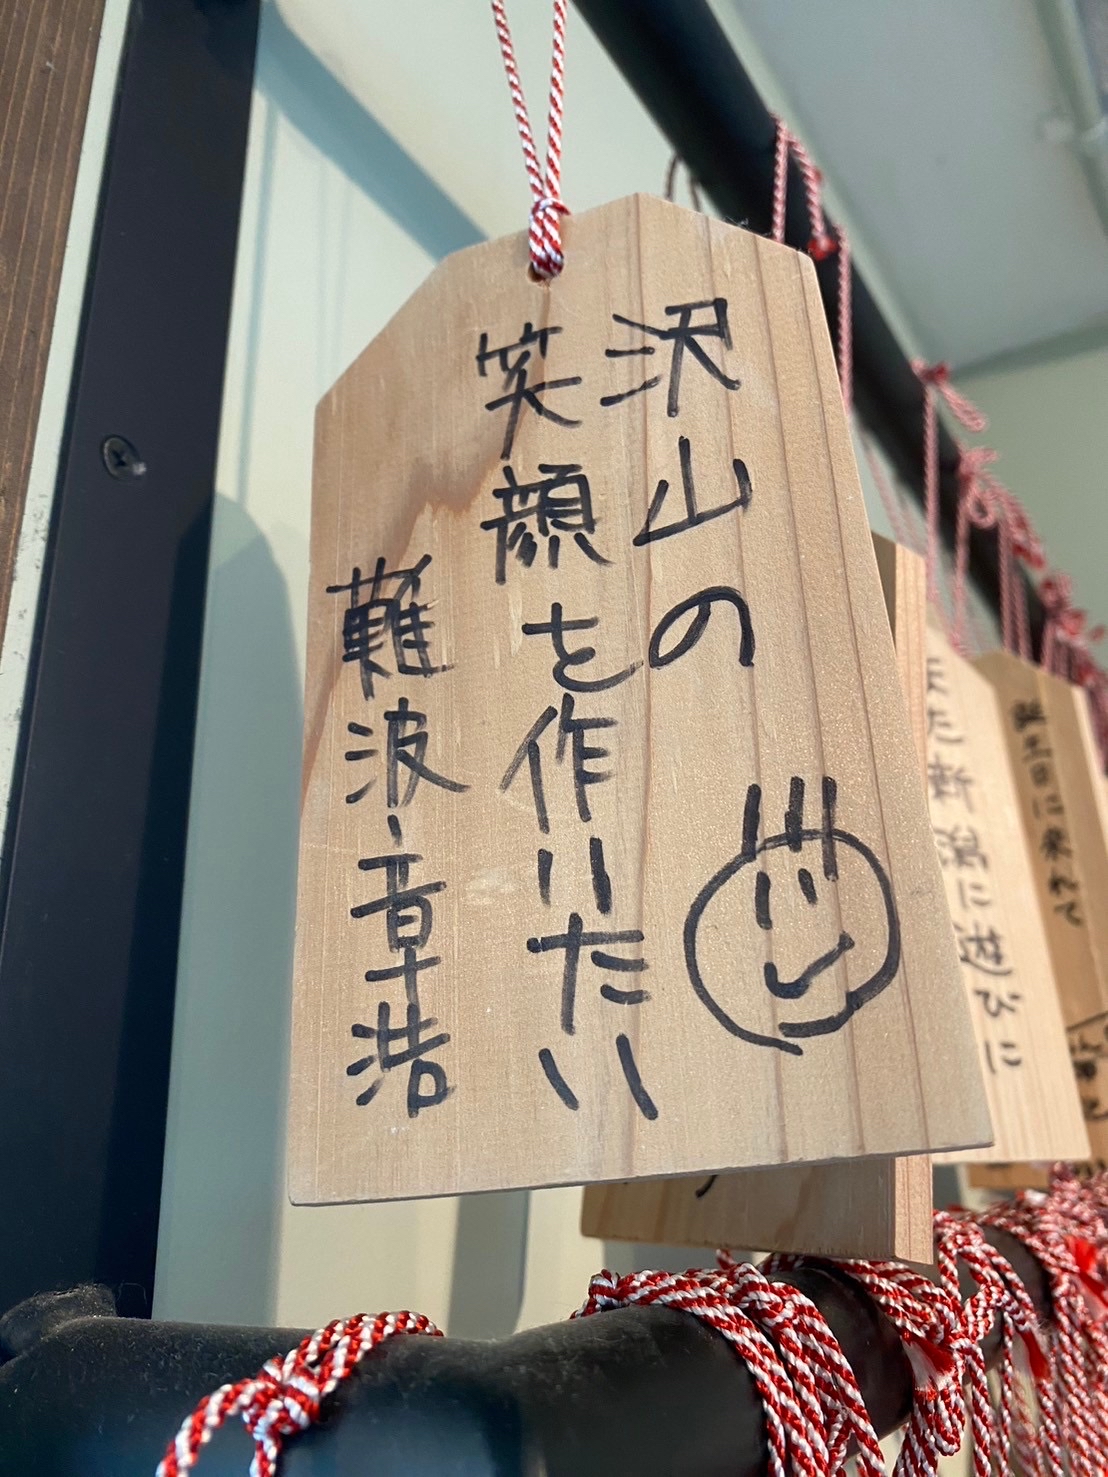 沢山の
笑顔を作りたい
難波章浩
また新潟に遊びに
誕生日に来れて